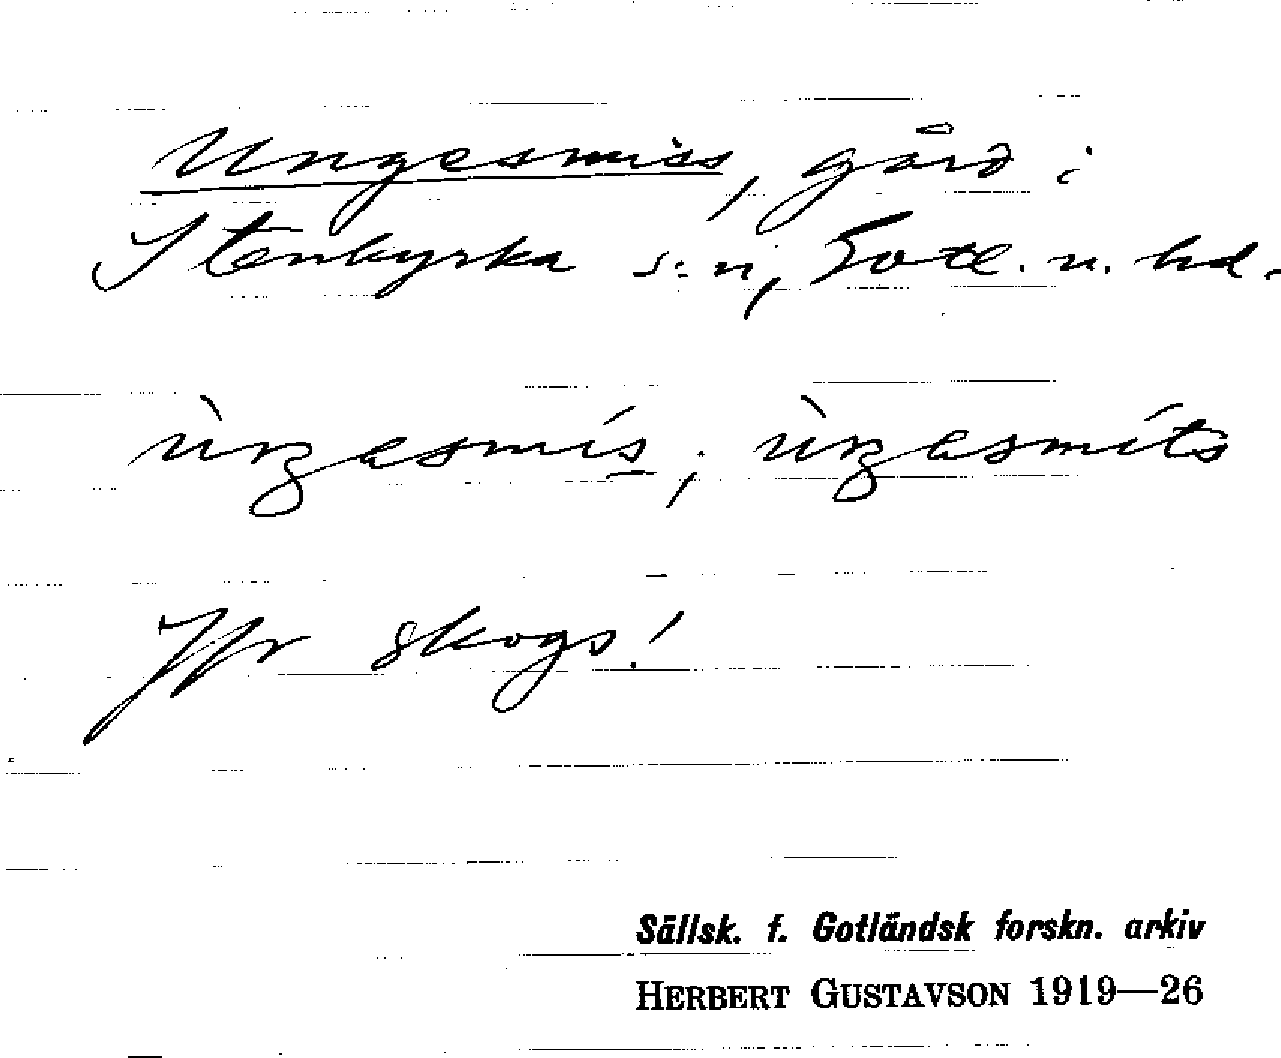 Ungesmiss, gård i
Stenkyrka s:n, Gotl. n. hd.
ùŋasmís; ùŋasmíts
Jfr skogs!
Sällsk. f. Gotländsk forskn. arkiv
HERBERT GUSTAVSON 1919—26